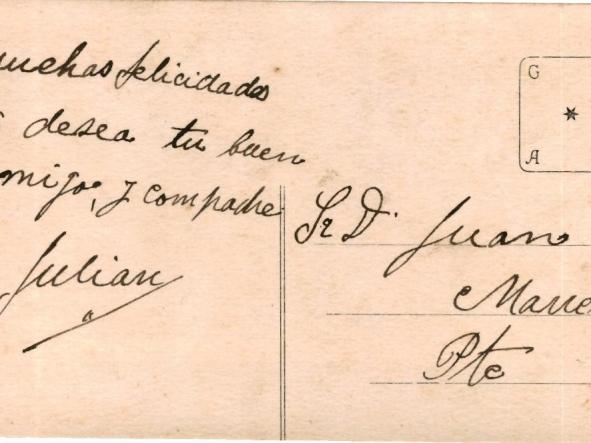 muchas felicidades
desea tu buen
amigo, y compadre
Julian
G
A
Sr D. Juan
Pte